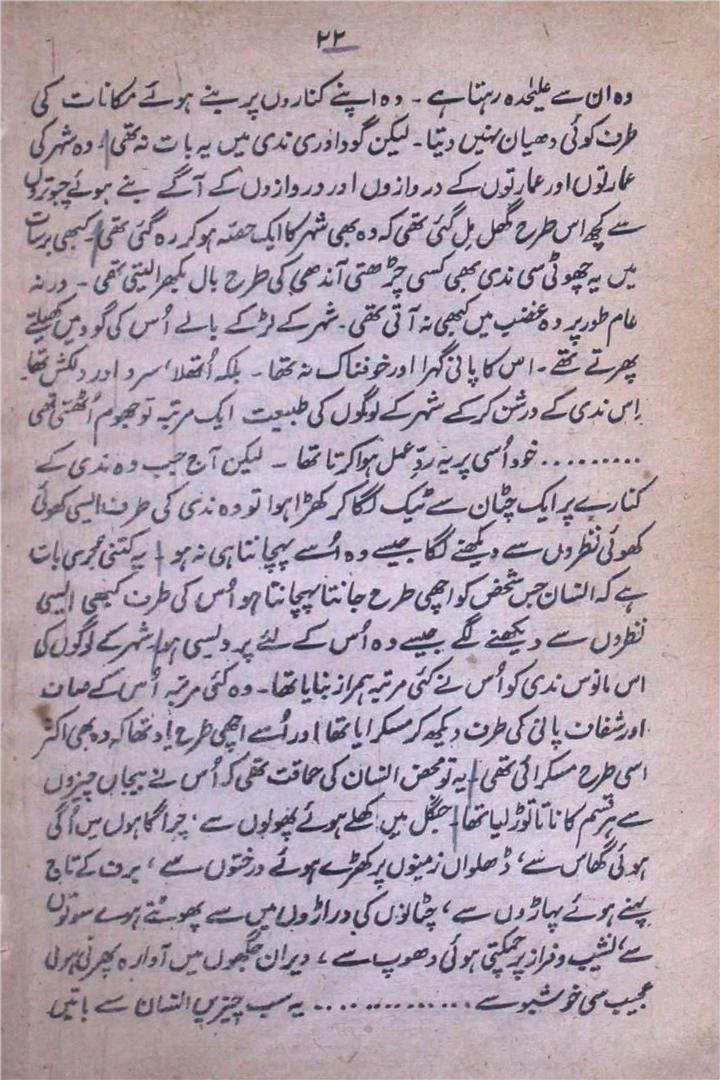 ۲۲
وہ ان سے علیٰحدہ رہتا ہے ۔ وہ اپنے کناروں پر بنے ہوئے مکانات کی
طرف کوئی دھیان نہیں دیتا ۔ لیکن گوداوری ندی میں یہ بات نہ تھی ۔ وہ شہر کی
عمارتوں اور عمارتوں کے دروازوں اور دروازوں کے آگے بنے ہوئے چبوتروں
سے کچھ اس طرح گھل مل گئی تھی کہ وہ بھی شہر کا ایک حصّہ ہو کر رہ گئی تھی ۔ کبھی برسات
میں یہ چھوٹی سی ندی بھی کسی چڑھتی آندھی کی طرح بال بکھرا لیتی تھی ۔ ورنہ
عام طور پر وہ غضب میں کبھی نہ آتی تھی ۔ شہر کے لڑکے بالے اُس کی گود میں کھیلتے
پھرتے تھے ۔ اس کا پانی گہرا اور خوفناک نہ تھا ۔ بلکہ اُتھلا، سرد اور دلکش تھا
اِس ندی کے درشن کر کے شہر کے لوگوں کی طبیعت ایک مرتبہ تو جھوم اُٹھتی تھی
......... خود اُسی پر یہ ردِّ عمل ہوا کرتا تھا ۔ لیکن آج جب وہ ندی کے
کنارے پر ایک چٹان سے ٹیک لگا کر کھڑا ہوا تو وہ ندی کی طرف ایسی کھوئی
کھوئی نظروں سے دیکھنے لگا جیسے وہ اُسے پہچانتا ہی نہ ہو ! یہ کتنی بُری بات
ہے کہ انسان جس شخص کو اچھی طرح جانتا پہچانتا ہو اُس کی طرف کبھی ایسی
نظروں سے دیکھنے لگے جیسے وہ اُس کے لئے پردیسی ہو ۔ شہر کے لوگوں کی
اس مانوس ندی کو اُس نے کئی مرتبہ ہمراز بنایا تھا ۔ وہ کئی مرتبہ اُس کے صاف
اور شفاف پانی کی طرف دیکھ کر مسکرایا تھا اور اُسے اچھی طرح یاد تھا کہ وہ بھی اکثر
اسی طرح مسکرائی تھی ۔ یہ تو محض انسان کی حماقت تھی کہ اُس نے بیجان چیزوں
سے ہر قسم کا ناتا توڑ لیا تھا ۔ جنگل میں کھلے ہوئے پھولوں سے، چراگاہوں میں اُگی
ہوئی گھاس سے، ڈھلوان زمینوں پر کھڑے ہوئے درختوں سے، برف کے تاج
پہنے ہوئے پہاڑوں سے، چٹانوں کی دراڑوں میں سے پھوٹتے ہوئے سوتوں
سے، نشیب و فراز پر چمکتی ہوئی دھوپ سے، ویران جگہوں میں آوارہ پھرتی ہوئی
عجیب سی خوشبو سے .............. یہ سب چیزیں انسان سے باتیں